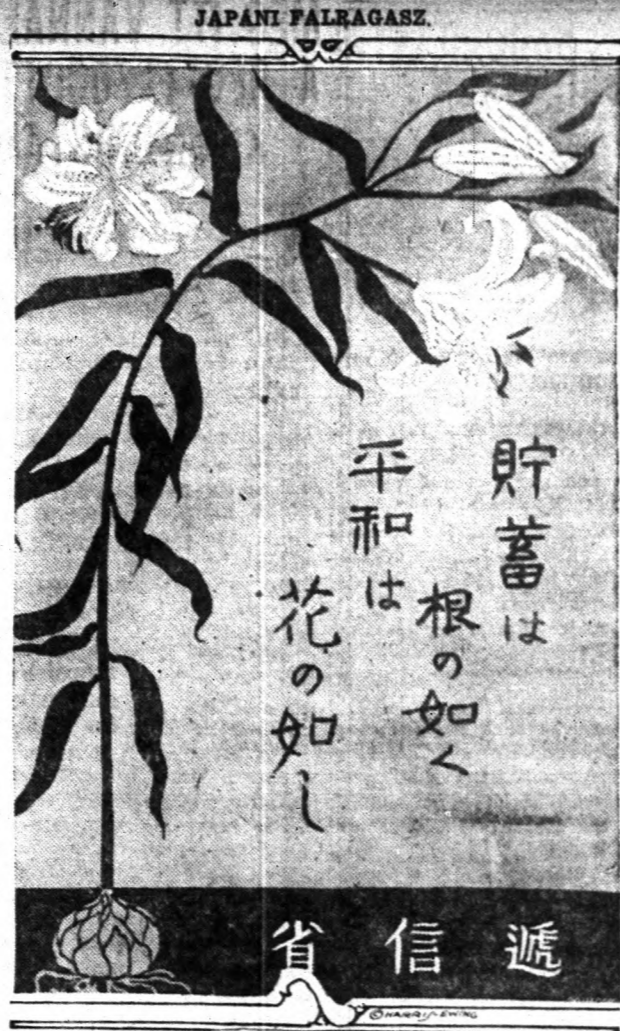 JAPÁNI FALRAGASZ.
貯蓄は
根の如く
平和は
花の如し
遞信省
©HARRIS & EWING